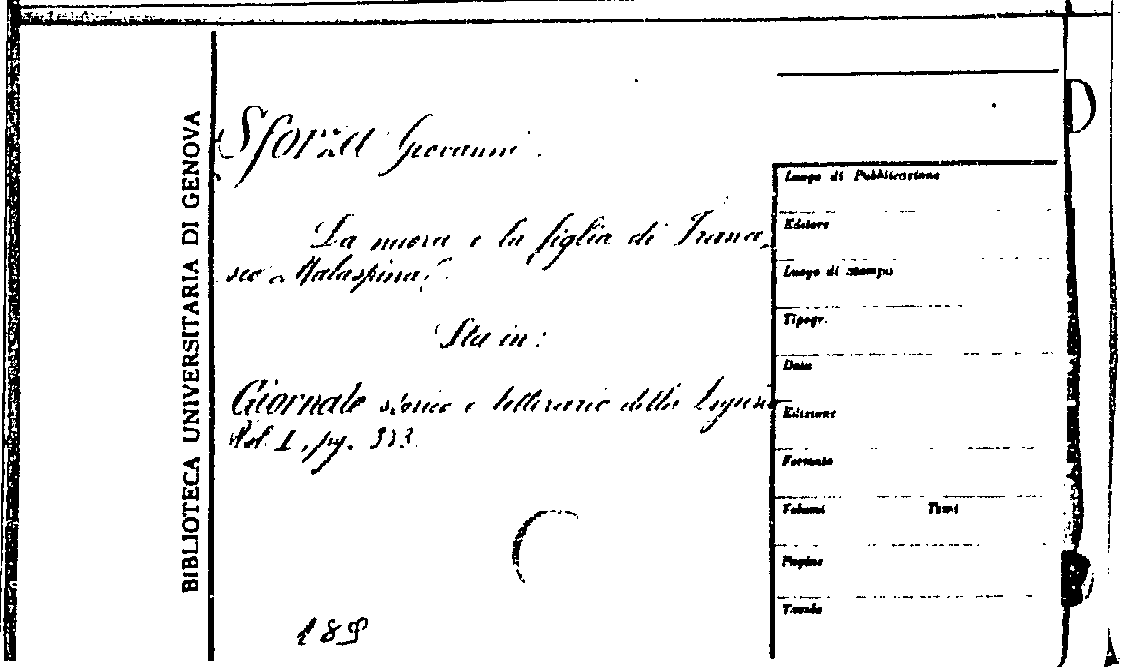 BIBLIOTECA UNIVERSITARIA DI GENOVA
Sforza Giovanni.
La nuora e la figlia di France
sco Malaspina.
Sta in:
Giornale storico e letterario della Liguria
Vol. I, pg. 323.
189
Luogo di Pubblicazione
Editore
Luogo di stampa
Tipogr.
Data
Edizione
Formato
Volumi Tomi
Pagine
Tavole